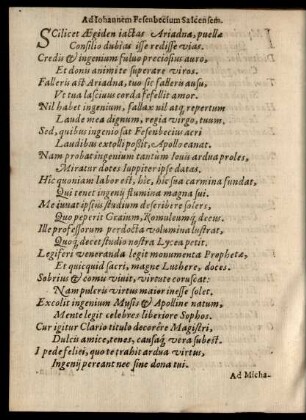 Ad Iohannem Fesenbecium Salcensem.
SCilicet Ægiden iactas Ariadna, puellæ
Consilio dubias isse redisse vias.
Credis & ingenium fuluo preciosius auro,
Et donu animi te superare viros.
Falleris ast Ariadna, tuo sic falleris ausu,
Vt tua lasciuus corda fefellit amor.
Nil habet ingenium, fallax nil atq; repertum
Laude mea dignum, regia virgo, tuum.
Sed, quibus ingenio sat Fesenbecius acri
Laudibus extolli possit, Apollo canat.
Nam probat ingenium tantum Iouis ardua proles,
Miratur dotes Iuppiter ipse datas.
Hic quoniam labor est, hic, hic sua carmina fundat,
Qui tenet ingenij flumina magna sui.
Me iuuat ipsius studium describere solers,
Quo peperit Graium, Romuleumq; decus.
Ille professorum per docta volumina lustrat,
Quoq; decet studio nostra Lycea petit.
Legiferi veneranda legit monumenta Prophetæ,
Et quicquid sacri, magne Luthere, doces.
Sobrius & comis viuit, virtute coruscat:
Nam pulcrû virtus maior inesse solet.
Excolit ingenium Musis & Apolline natum,
Mente legit celebres liberiore Sophos.
Cur igitur Clario titulo decorêre Magistri,
Dulcis amice, tenes, causaq; vera subest.
I pede felici, quo te trahit ardua virtus,
Ingenij pereant nec sine dona tui.
Ad Micha-